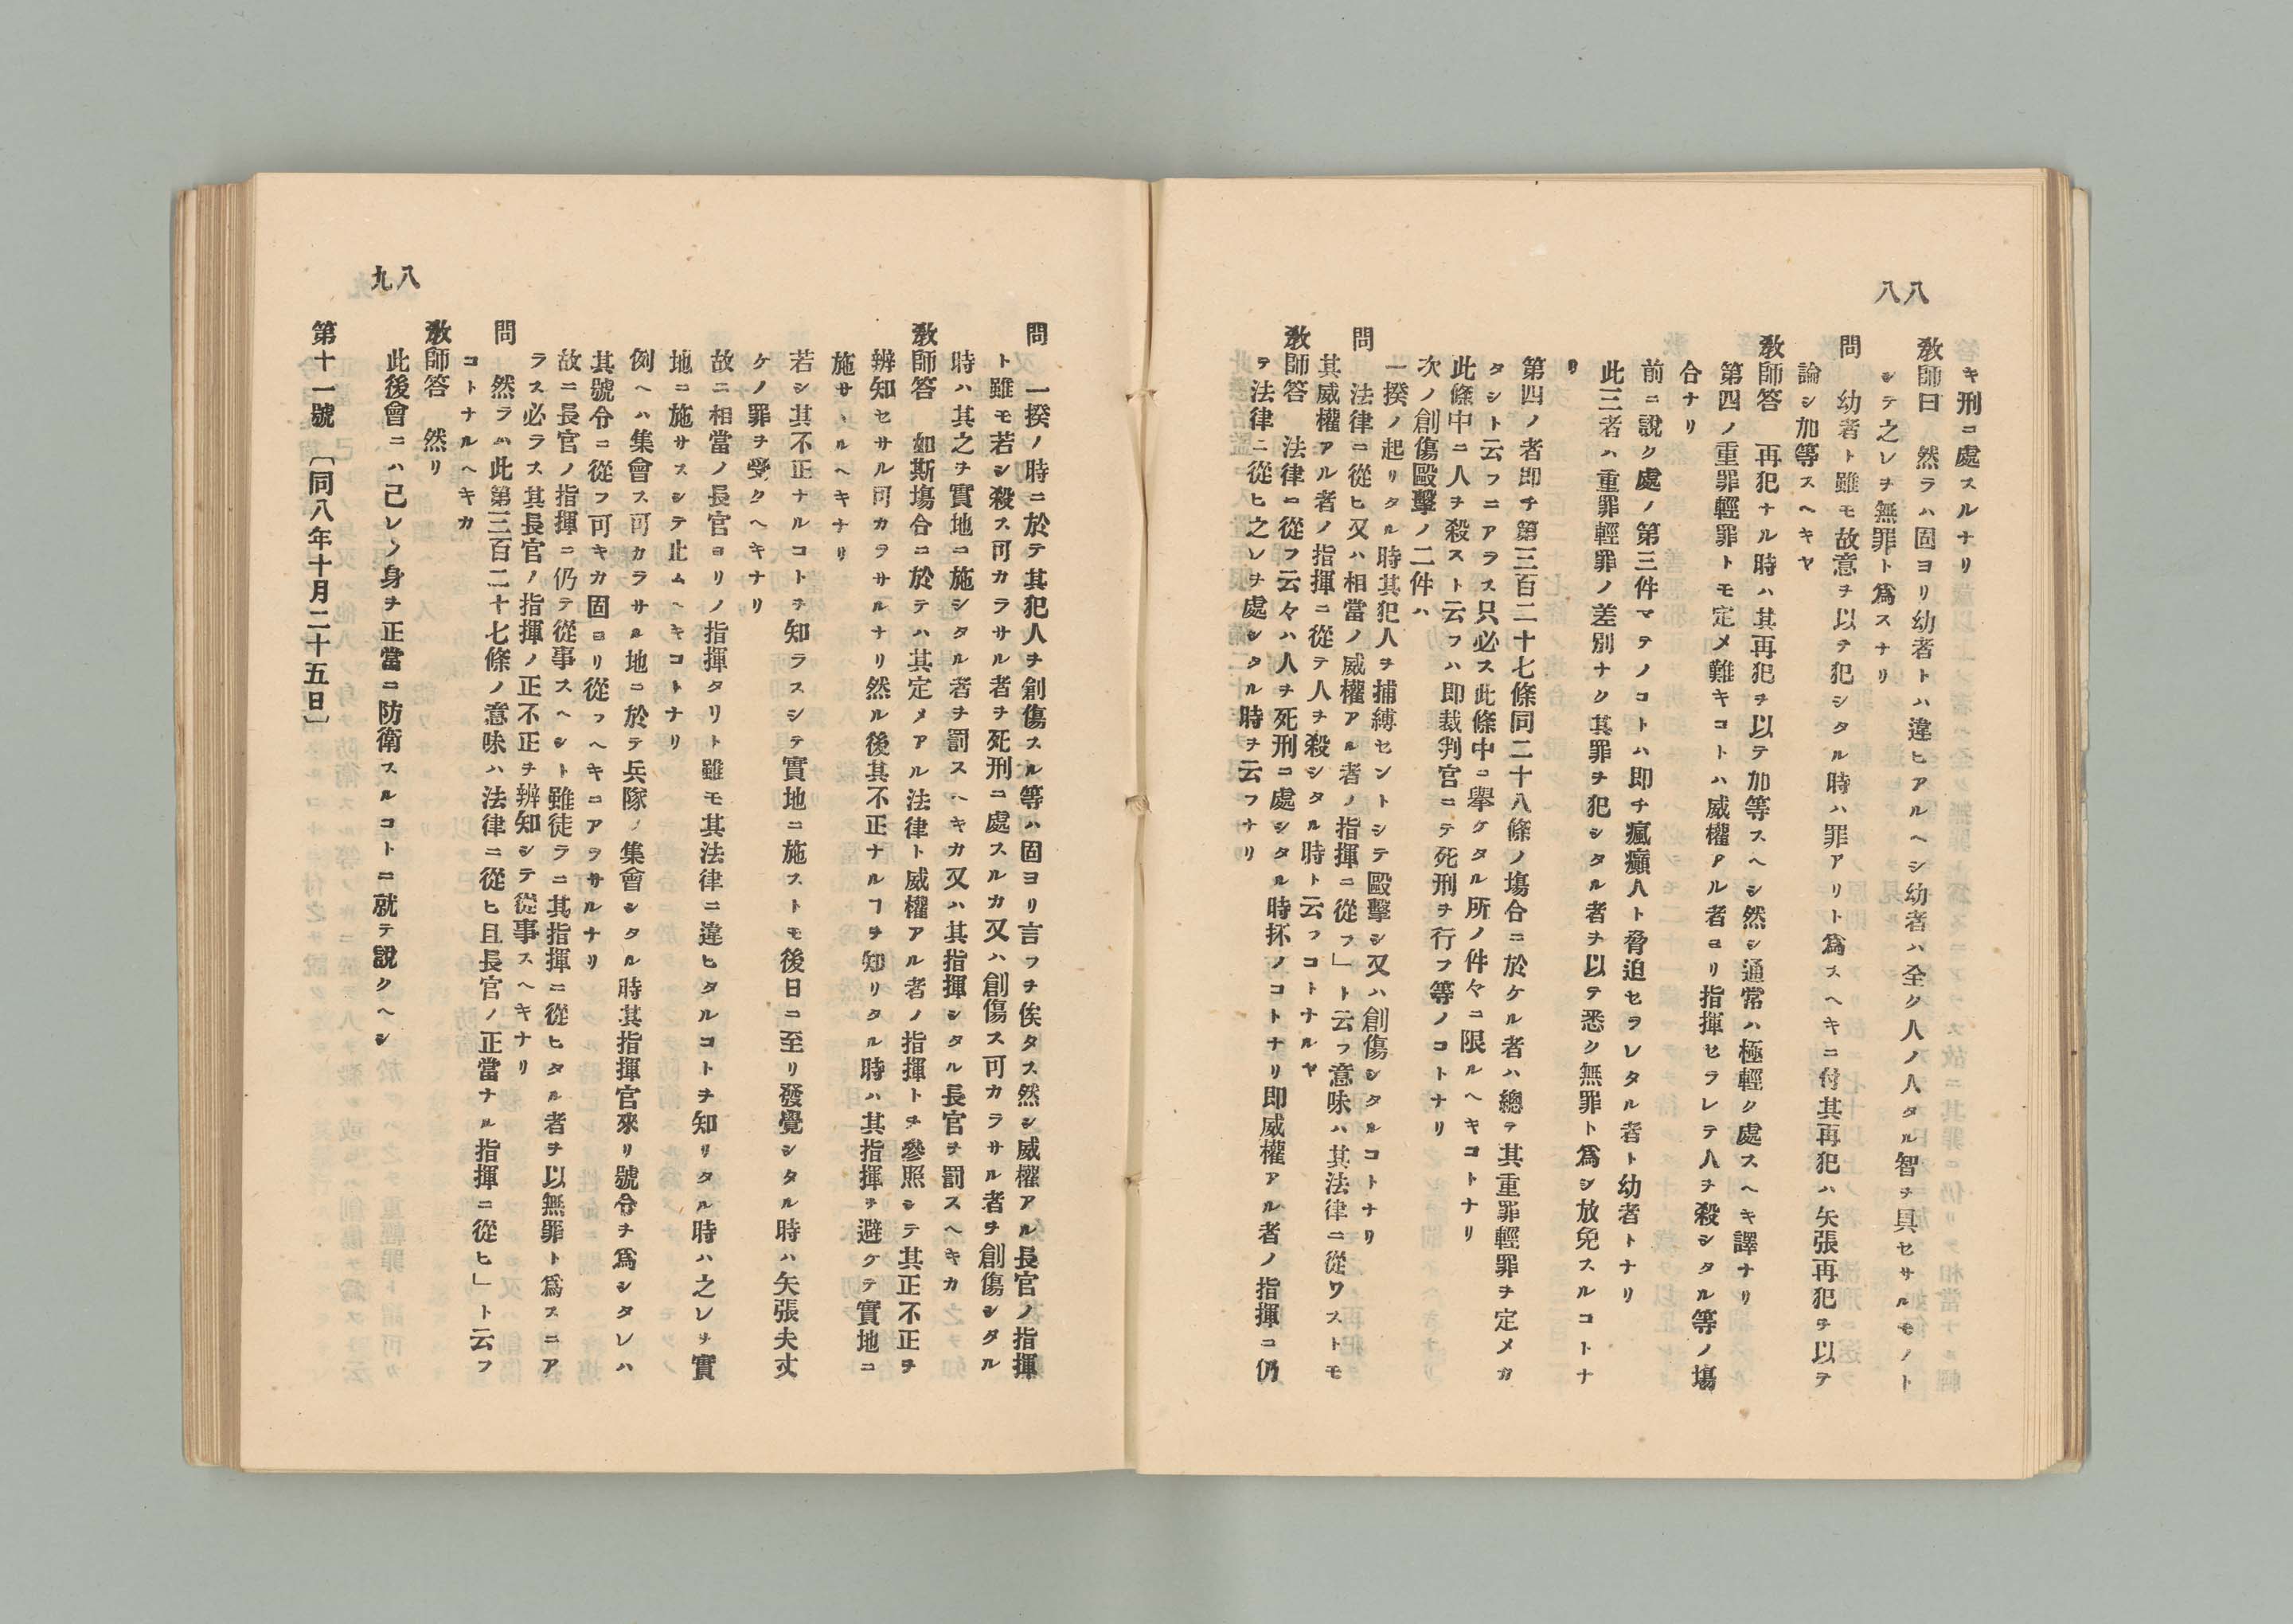 八八
キ刑ニ處スルナリ
敎師曰　然ラハ固ヨリ幼者トハ違ヒアルヘシ幼者ハ全ク人ノ人タル智ヲ具セサルモノト
シテ之レヲ無罪ト爲スナリ
問　幼者ト雖モ故意ヲ以テ犯シタル時ハ罪アリト爲スヘキニ付其再犯ハ矢張再犯ヲ以テ
論シ加等スヘキヤ
敎師答　再犯ナル時ハ其再犯ヲ以テ加等スヘシ然シ通常ハ極輕ク處スヘキ譯ナリ
第四ノ重罪輕罪トモ定メ難キコトハ威權アル者ヨリ指揮セラレテ人ヲ殺シタル等ノ塲
合ナリ
前ニ說ク處ノ第三件マテノコトハ即チ瘋癲人ト脅迫セヲレタル者ト幼者トナリ
此三者ハ重罪輕罪ノ差別ナク其罪ヲ犯シタル者ヲ以テ悉ク無罪ト爲シ放免スルコトナ
リ
第四ノ者即チ第三百二十七條同二十八條ノ塲合ニ於ケル者ハ總テ其重罪輕罪ヲ定メカ
タシト云フニアラス只必ス此條中ニ擧ケタル所ノ件々ニ限ルヘキコトナリ
此條中ニ人ヲ殺スト云フハ即裁判官ニテ死刑ヲ行フ等ノコトナリ
次ノ創傷毆擊ノ二件ハ
一揆ノ起リタル時其犯人ヲ捕縛セントシテ毆擊シ又ハ創傷シタルコトナリ
問　法律ニ從ヒ又ハ相當ノ威權アル者ノ指揮ニ從フ」ト云フ意味ハ其法律ニ從ワストモ
其威權アル者ノ指揮ニ從テ人ヲ殺シタル時ト云フコトナルヤ
敎師答　法律ニ從フ云々ハ人ヲ死刑ニ處シタル時抔ノコトナリ即威權アル者ノ指揮ニ仍
テ法律ニ從ヒ之レヲ處シタル時ヲ云フナリ
八九
問　一揆ノ時ニ於テ其犯人ヲ創傷スル等ハ固ヨリ言フヲ俟タス然シ威權アル長官ノ指揮
ト雖モ若シ殺ス可カラサル者ヲ死刑ニ處スルカ又ハ創傷ス可カラサル者ヲ創傷シタル
時ハ其之ヲ實地ニ施シタル者ヲ罰スヘキカ又ハ其指揮シタル長官ヲ罰スヘキカ
敎師答　如斯塲合ニ於テハ其定メアル法律ト威權アル者ノ指揮トヲ參照シテ其正不正ヲ
辨知セサル可カラサルナリ然ル後其不正ナルヿヲ知リタル時ハ其指揮ヲ避ケテ實地ニ
施サヽルヘキナリ
若シ其不正ナルコトヲ知ラスシテ實地ニ施ストモ後日ニ至リ發覺シタル時ハ矢張夫丈
ケノ罪ヲ受クヘキナリ
故ニ相當ノ長官ヨリノ指揮タリト雖モ其法律ニ違ヒタルコトヲ知リタル時ハ之レヲ實
地ニ施サスシテ止ムヘキコトナリ
例ヘハ集會ス可カラサル地ニ於テ兵隊ノ集會シタル時其指揮官來リ號令ヲ爲シタレハ
其號令ニ從フ可キカ固ヨリ從フヘキニアラサルナリ
故ニ長官ノ指揮ニ仍テ從事スヘシト雖徒ラニ其指揮ニ從ヒタル者ヲ以無罪ト爲スニア
ラス必ラス其長官ノ指揮ノ正不正ヲ辨知シテ從事スヘキナリ
問　然ラハ此第三百二十七條ノ意味ハ法律ニ從ヒ且長官ノ正當ナル指揮ニ從ヒ」ト云フ
コトナルヘキカ
敎師答　然リ
此後會ニハ己レノ身ヲ正當ニ防衛スルコトニ就テ說クヘシ
第十一號　〔同八年十月二十五日〕